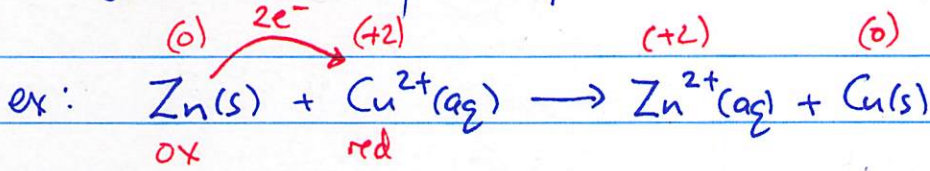 (0) 2e⁻ (+2) (+2) (0)
ex: Zn(s) + Cu²⁺(aq) ⟶ Zn²⁺(aq) + Cu(s)
ox red